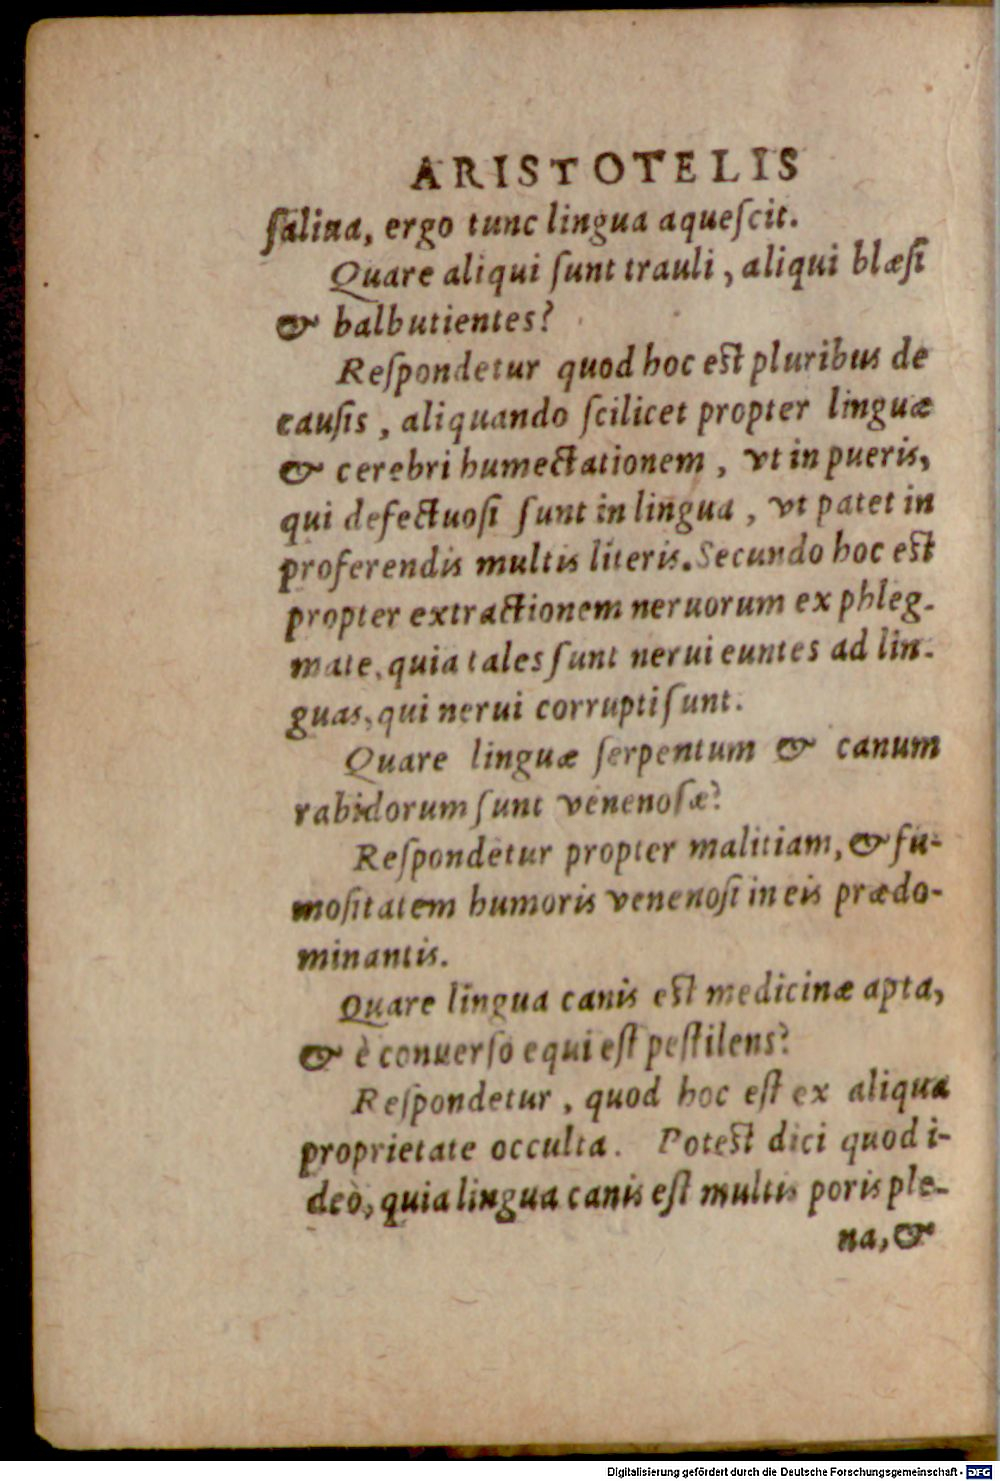 ARISTOTELIS
ſaliua, ergo tunc lingua aqueſcit.
Quare aliqui ſunt trauli, aliqui blæſi
& balbutientes?
Reſpondetur quod hoc eſt pluribus de
cauſis, aliquando ſcilicet propter linguæ
& cerebri humectationem, vt in pueris,
qui defectuoſi ſunt in lingua, vt patet in
proferendis multis literis. Secundo hoc eſt
propter extractionem neruorum ex phleg-
mate, quia tales ſunt nerui euntes ad lin-
guas, qui nerui corrupti ſunt.
Quare linguæ ſerpentum & canum
rabidorum ſunt venenoſæ?
Reſpondetur propter malitiam, & fu-
moſitatem humoris venenoſi in eis prædo-
minantis.
Quare lingua canis eſt medicinæ apta,
& è conuerſo equi eſt peſtilens?
Reſpondetur, quod hoc eſt ex aliqua
proprietate occulta. Poteſt dici quod i-
deò, quia lingua canis eſt multis poris ple-
na, &
Digitalisierung gefördert durch die Deutsche Forschungsgemeinschaft - DFG